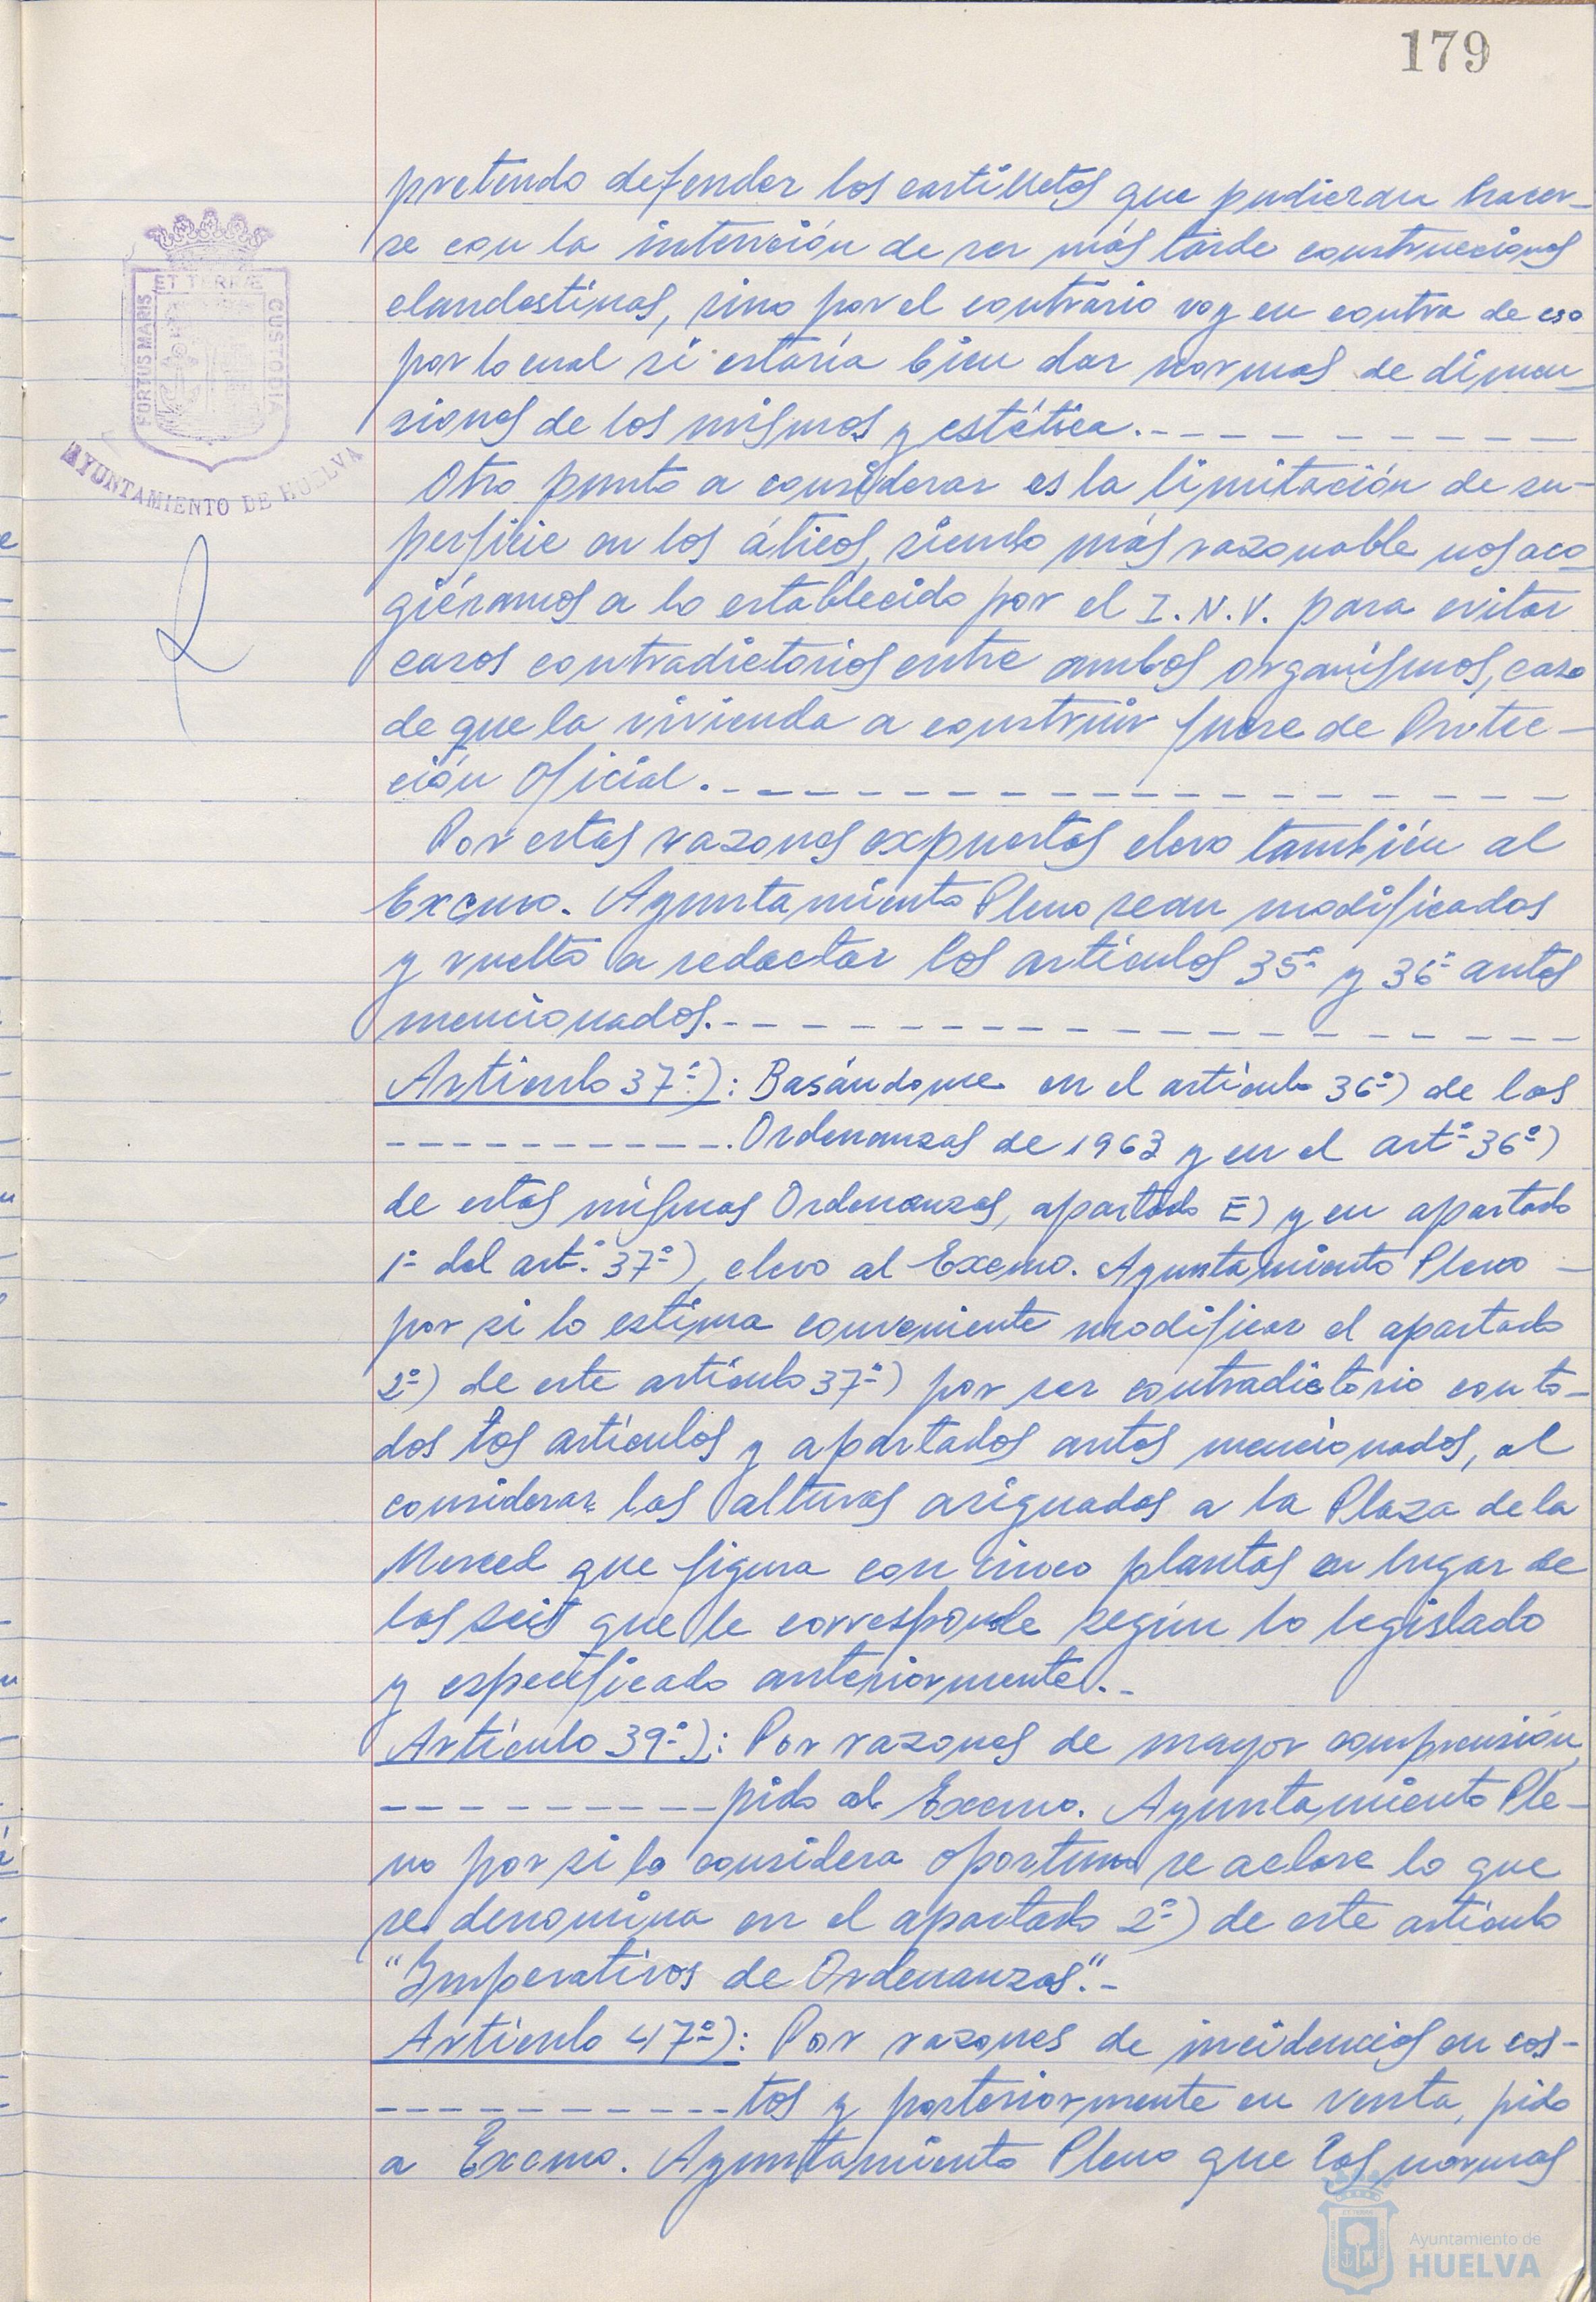 179
PORTUS MARIS
ET TERRÆ
CUSTODIA
AYUNTAMIENTO DE HUELVA
pretendo defender los castilletes que pudieran hacer-
se con la intención de ser más tarde construcciones
clandestinas, sino por el contrario voy en contra de eso
por lo cual si estaría bien dar normas de dimen-
siones de los mismos y estética.
Otro punto a considerar es la limitación de su-
perficie en los áticos, siendo más razonable nos aco-
giéramos a lo establecido por el I.N.V. para evitar
casos contradictorios entre ambos organismos, caso
de que la vivienda a construir fuese de Protec-
ción Oficial.
Por estas razones expuestas elevo también al
Excmo. Ayuntamiento Pleno sean modificados
y vuelto a redactar los artículos 35º y 36º antes
mencionados.
Artículo 37º): Basándome en el artículo 36º) de las
Ordenanzas de 1963 y en el artº 36º)
de estas mismas Ordenanzas, apartado E) y en apartado
1º del artº. 37º), elevo al Excmo. Ayuntamiento Pleno -
por si lo estima conveniente modificar el apartado
2º) de este artículo 37º) por ser contradictorio con to-
dos los artículos y apartados antes mencionados, al
considerar las alturas asignadas a la Plaza de la
Merced que figura con cinco plantas en lugar de
las seis que le corresponde según lo legislado
y especificado anteriormente.-
Artículo 39º): Por razones de mayor comprensión,
pido al Excmo. Ayuntamiento Ple-
no por si lo considera oportuno se aclare lo que
se denomina en el apartado 2º) de este artículo
"Imperativos de Ordenanzas".-
Artículo 47º): Por razones de incidencias en cos-
tos y posteriormente en venta, pido
a Excmo. Ayuntamiento Pleno que las normas
Ayuntamiento de
HUELVA